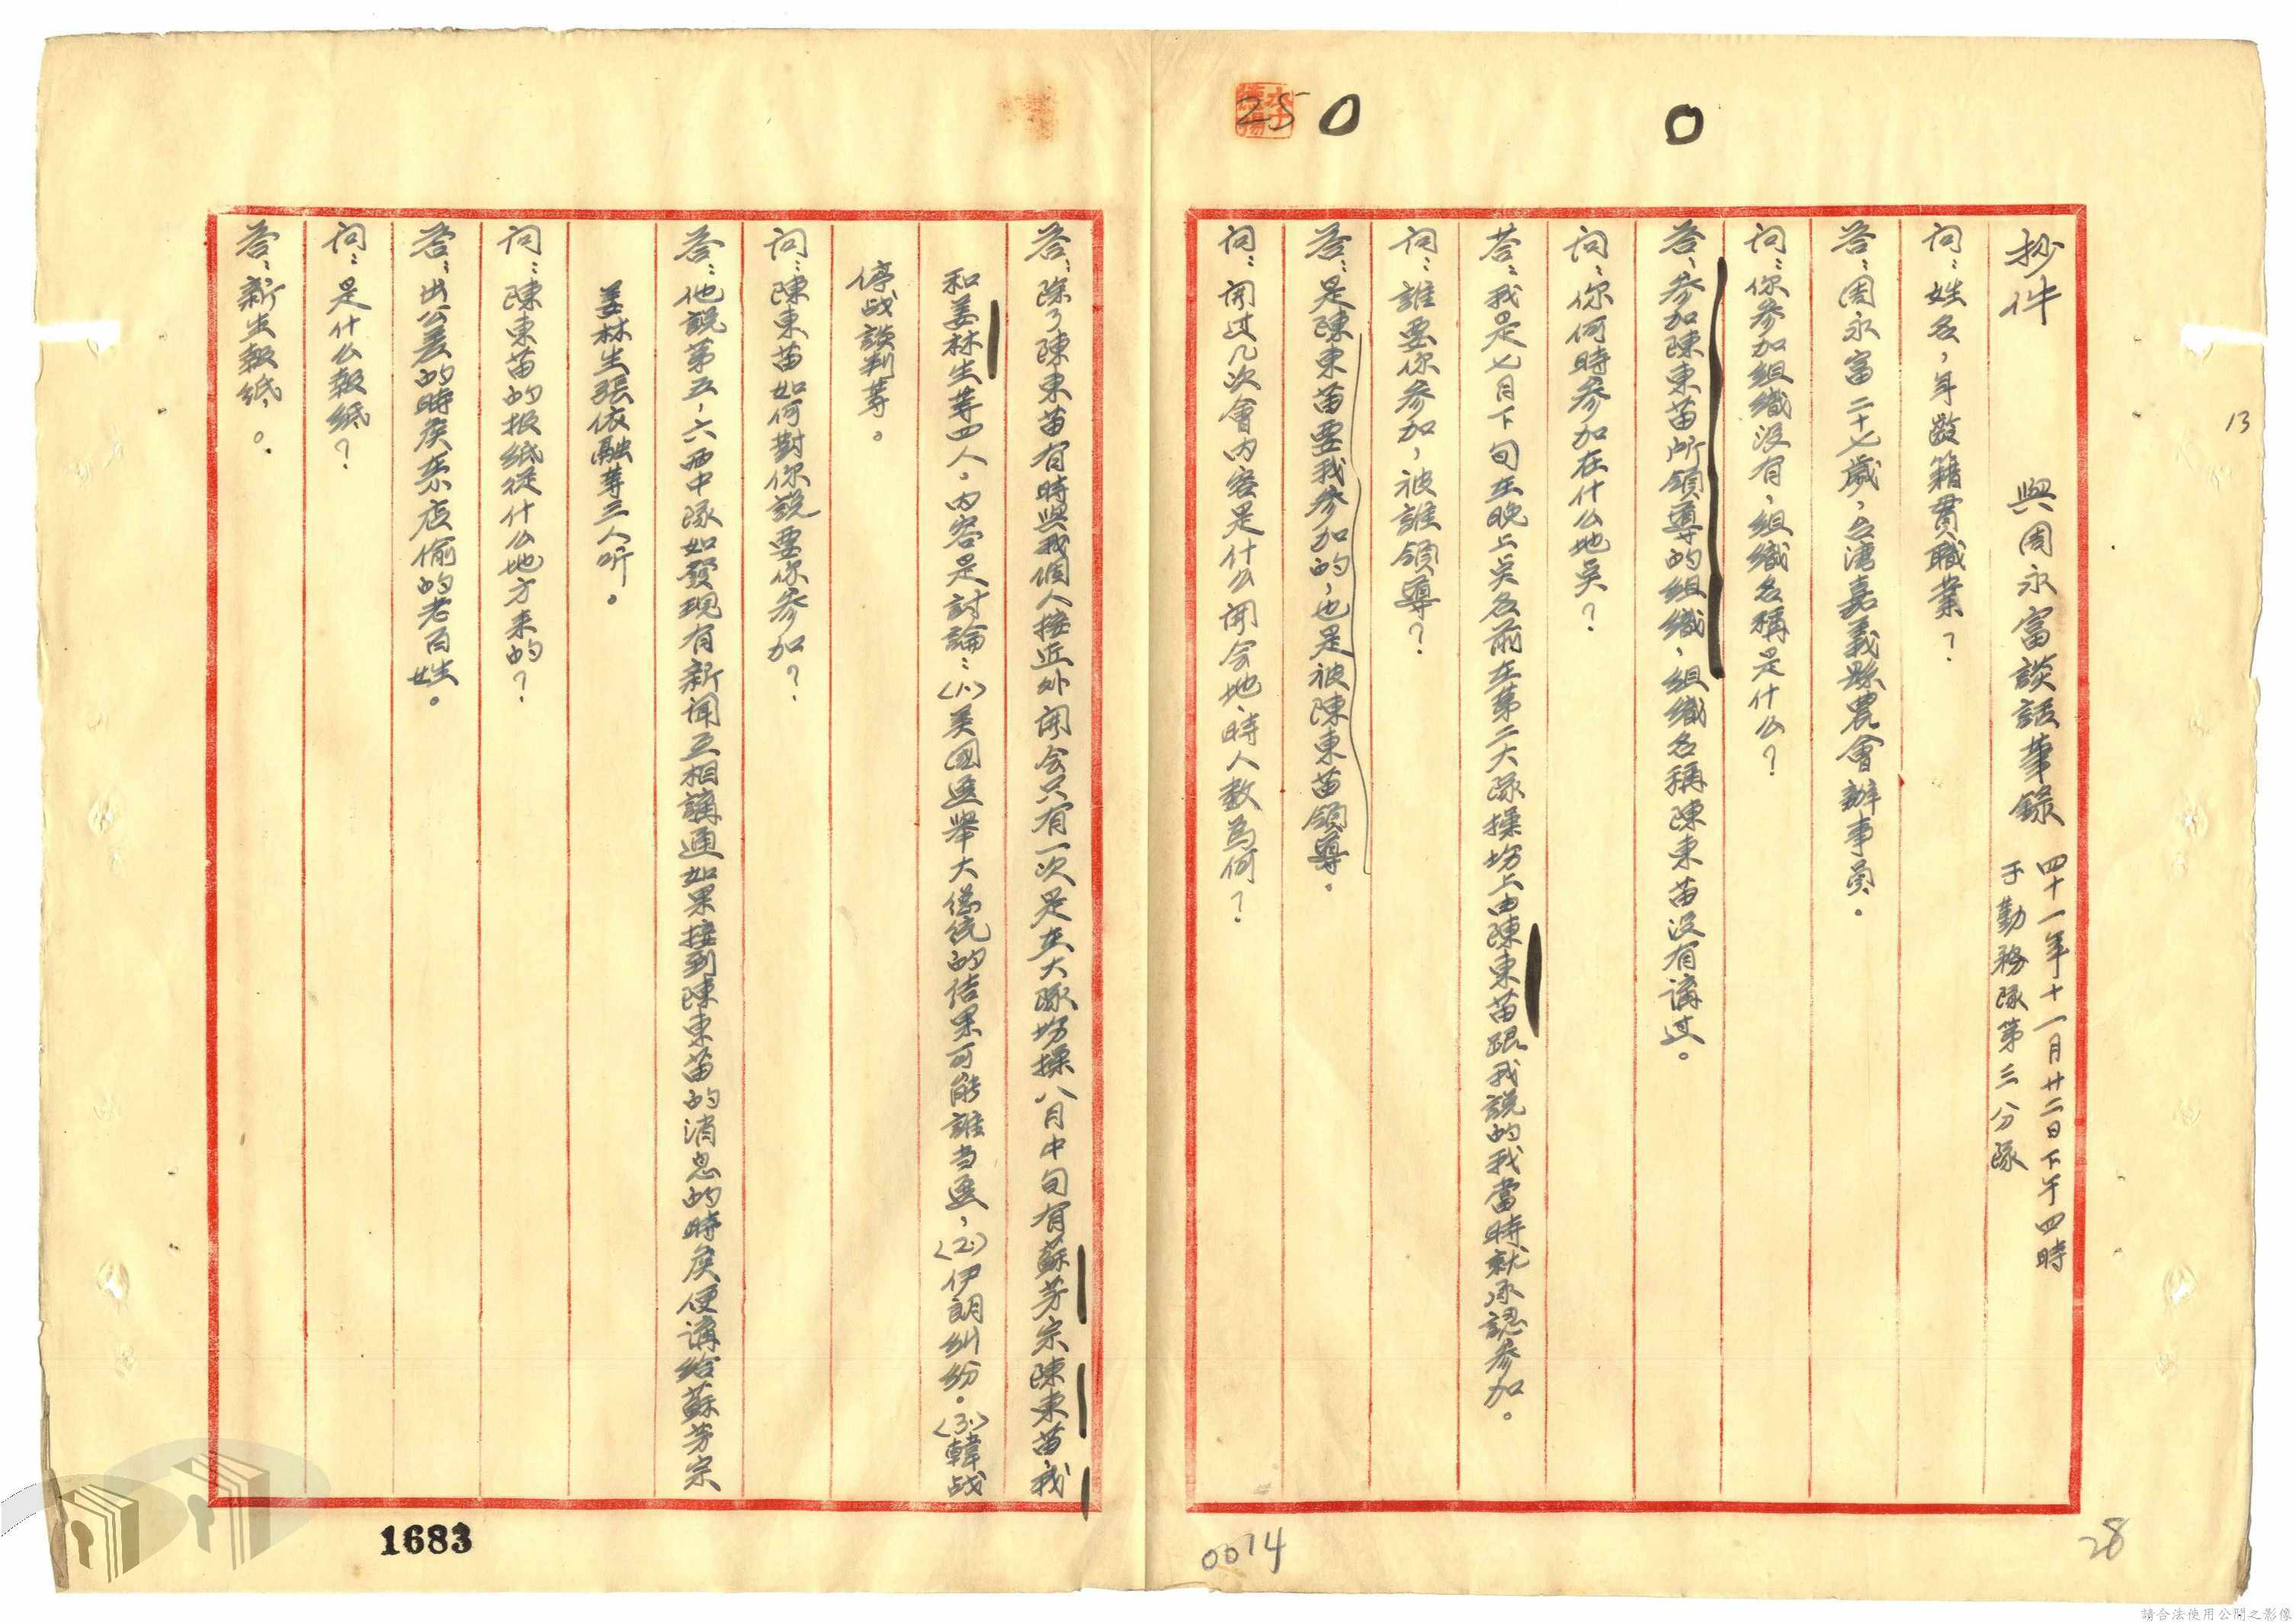 抄件
與周永富談話筆錄
四十一年十一月廿二日下午四時
于勤務隊第三分隊
问：姓名，年齡籍貫職業？
答：周永富二十七歲，台湾嘉義縣農會辦事員。
问：你參加組織没有，組織名稱是什么？
答：參加陳東苗所領導的組織，組織名稱陳東苗没有講过。
问：你何時參加在什么地奌？
答：我是七月下旬在晚上奌名前在第二大隊操場上由陳東苗跟我說的我當時就承認參加。
问：誰要你參加，被誰領導？
答：是陳東苗要我參加的，也是被陳東苗領導。
问：開过几次會内容是什么開会地、時人数為何？
答：除了陳東苗有時與我個人接近外開会只有一次是在大隊場操八月中旬有蘇芳宗陳東苗我
和姜林生等四人。内容是討論：(1.)美國選舉大總統的結果可能誰当選，(2.)伊朗糾紛。(3.)韓战
停战談判等。
问：陳東苗如何對你說要你參加？
答：他說第五，六两中隊如發現有新闻互相講通如果接到陳東苗的消息的時矦便講給蘇芳宗
姜林生張依融等三人听。
问：陳東苗的报紙從什么地方来的？
答：出公差的時矦在店偷的老百姓。
问：是什么報紙？
答：新生報紙。
25
0
0
13
28
0014
1683
請合法使用公開之影像